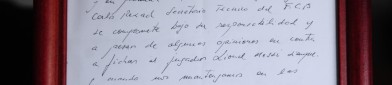 Carlos Rexach Secretario Técnico del F.C.B
se compromete bajo su responsabilidad y
a pesar de algunas opiniones en contra
a fichar al jugador Lionel Messi siempre
y cuando nos mantengamos en las